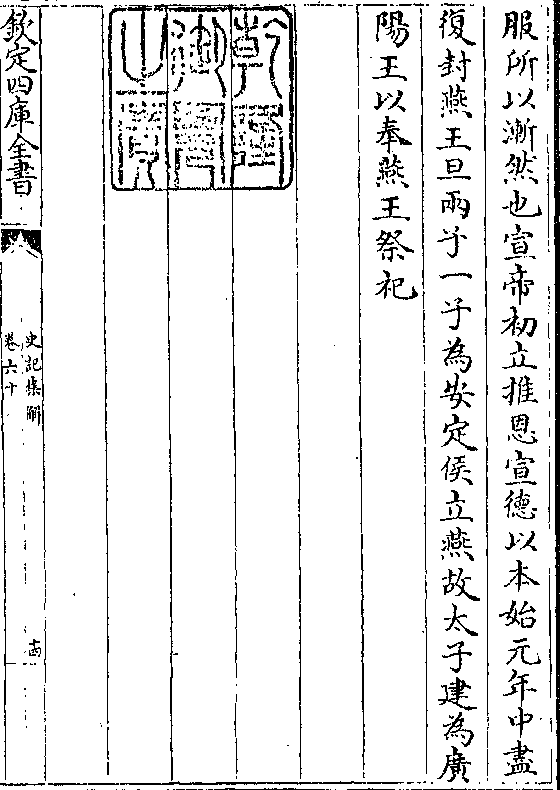 服所以漸然也宣帝初立推恩宣德以本始元年中盡
復封燕王旦兩子一子為安定侯立燕故太子建為廣
陽王以奉燕王祭祀
乾隆
御覽
之寶
欽定四庫全書
史記集解
卷六十
十四